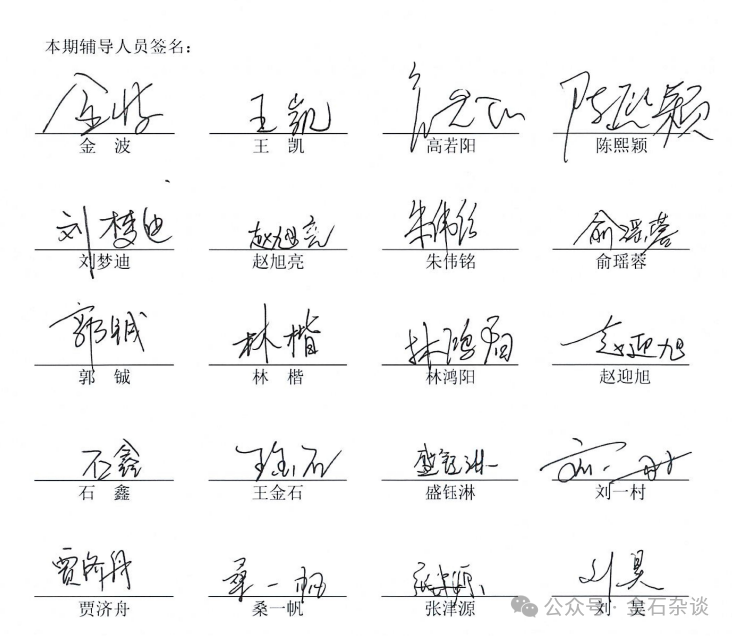 本期辅导人员签名：
金波 王凯 高若阳 陈熙颖
金 波 王 凯 高若阳 陈熙颖
刘梦迪 赵旭亮 朱伟铭 俞瑶蓉
刘梦迪 赵旭亮 朱伟铭 俞瑶蓉
郭铖 林楷 林鸿阳 赵迎旭
郭 铖 林 楷 林鸿阳 赵迎旭
石鑫 王金石 盛钰淋 刘一村
石 鑫 王金石 盛钰淋 刘一村
贾济舟 桑一帆 张津源 刘昊
贾济舟 桑一帆 张津源 刘 昊
公众号·金石杂谈